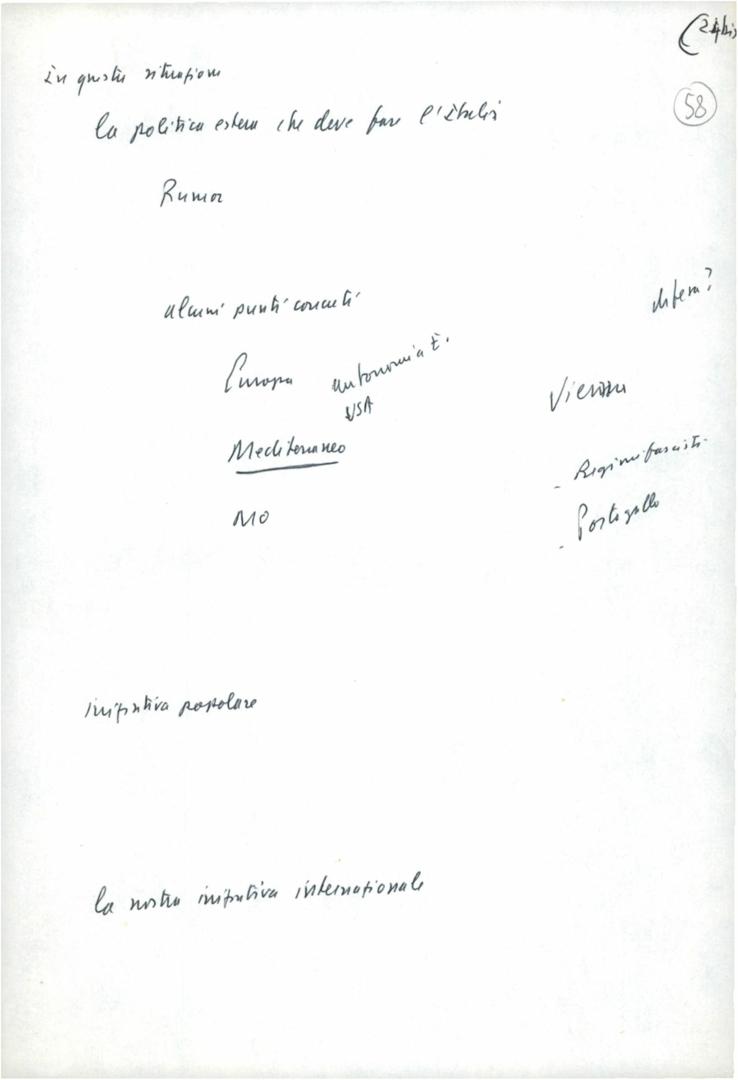 (24bis
58
In questa situazione
la politica estera che deve fare l'Italia
Rumor
alcuni punti concreti
difesa?
Europa autonomia E.
USA
Vienna
Mediterraneo
- Regimi fascisti
MO
- Portogallo
iniziativa popolare
la nostra iniziativa internazionale